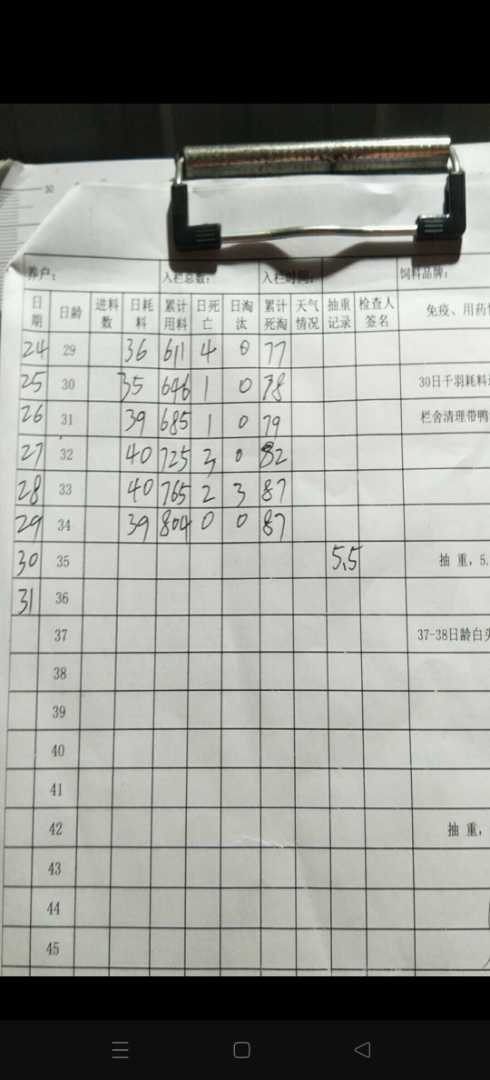 30
养户: 入栏总数: 入栏时间: 饲料品牌:
日期 日龄 进料数 日耗料 累计用料 日死亡 日淘汰 累计死淘 天气情况 抽重记录 检查人签名 免疫、用药
24 29 36 611 4 0 77
25 30 35 646 1 0 78 30日千羽耗料
26 31 39 685 1 0 79 栏舍清理带鸭
27 32 40 725 3 0 82
28 33 40 765 2 3 87
29 34 39 804 0 0 87
30 35 5.5 抽重,5.
31 36
37 37-38日龄白
38
39
40
41
42 抽重,
43
44
45